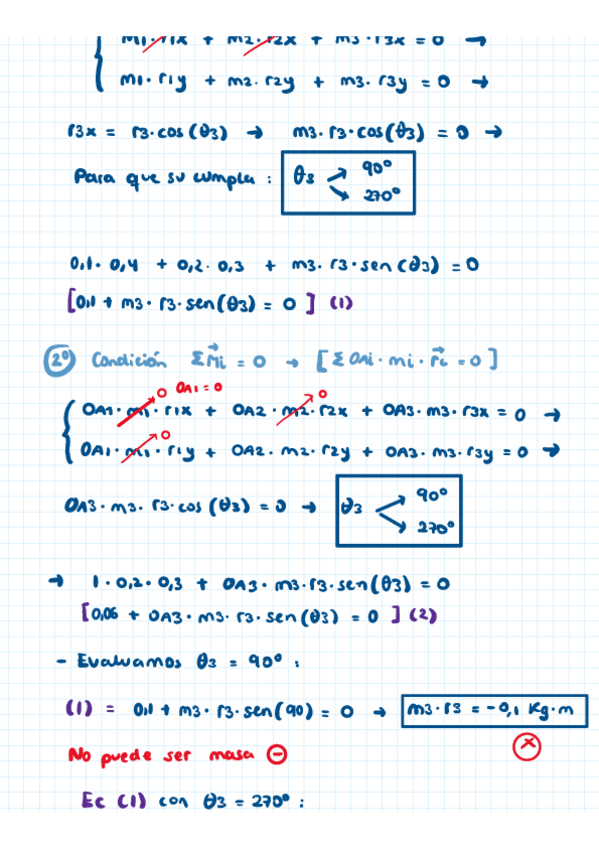 m1 · r1x + m2 · r2x + m3 · r3x = 0 →
m1 · r1y + m2 · r2y + m3 · r3y = 0 →
r3x = r3 · cos (θ3) → m3 · r3 · cos (θ3) = 0 →
Para que su cumpla : θ3 90º
270º
0,1 · 0,4 + 0,2 · 0,3 + m3 · r3 · sen (θ3) = 0
[0,1 + m3 · r3 · sen (θ3) = 0 ] (1)
2º Condición Σ M⃗i = 0 → [ Σ OAi · mi · r⃗i = 0 ]
0 OA1 = 0 0
OA1 · m1 · r1x + OA2 · m2 · r2x + OA3 · m3 · r3x = 0 →
0
OA1 · m1 · r1y + OA2 · m2 · r2y + OA3 · m3 · r3y = 0 →
OA3 · m3 · r3 · cos (θ3) = 0 → θ3 90º
270º
→ 1 · 0,2 · 0,3 + OA3 · m3 · r3 · sen (θ3) = 0
[0,06 + OA3 · m3 · r3 · sen (θ3) = 0 ] (2)
- Evaluamos θ3 = 90º :
(1) = 0,1 + m3 · r3 · sen (90) = 0 → m3 · r3 = -0,1 Kg · m
No puede ser masa ⊖ ⓧ
Ec (1) con θ3 = 270º :